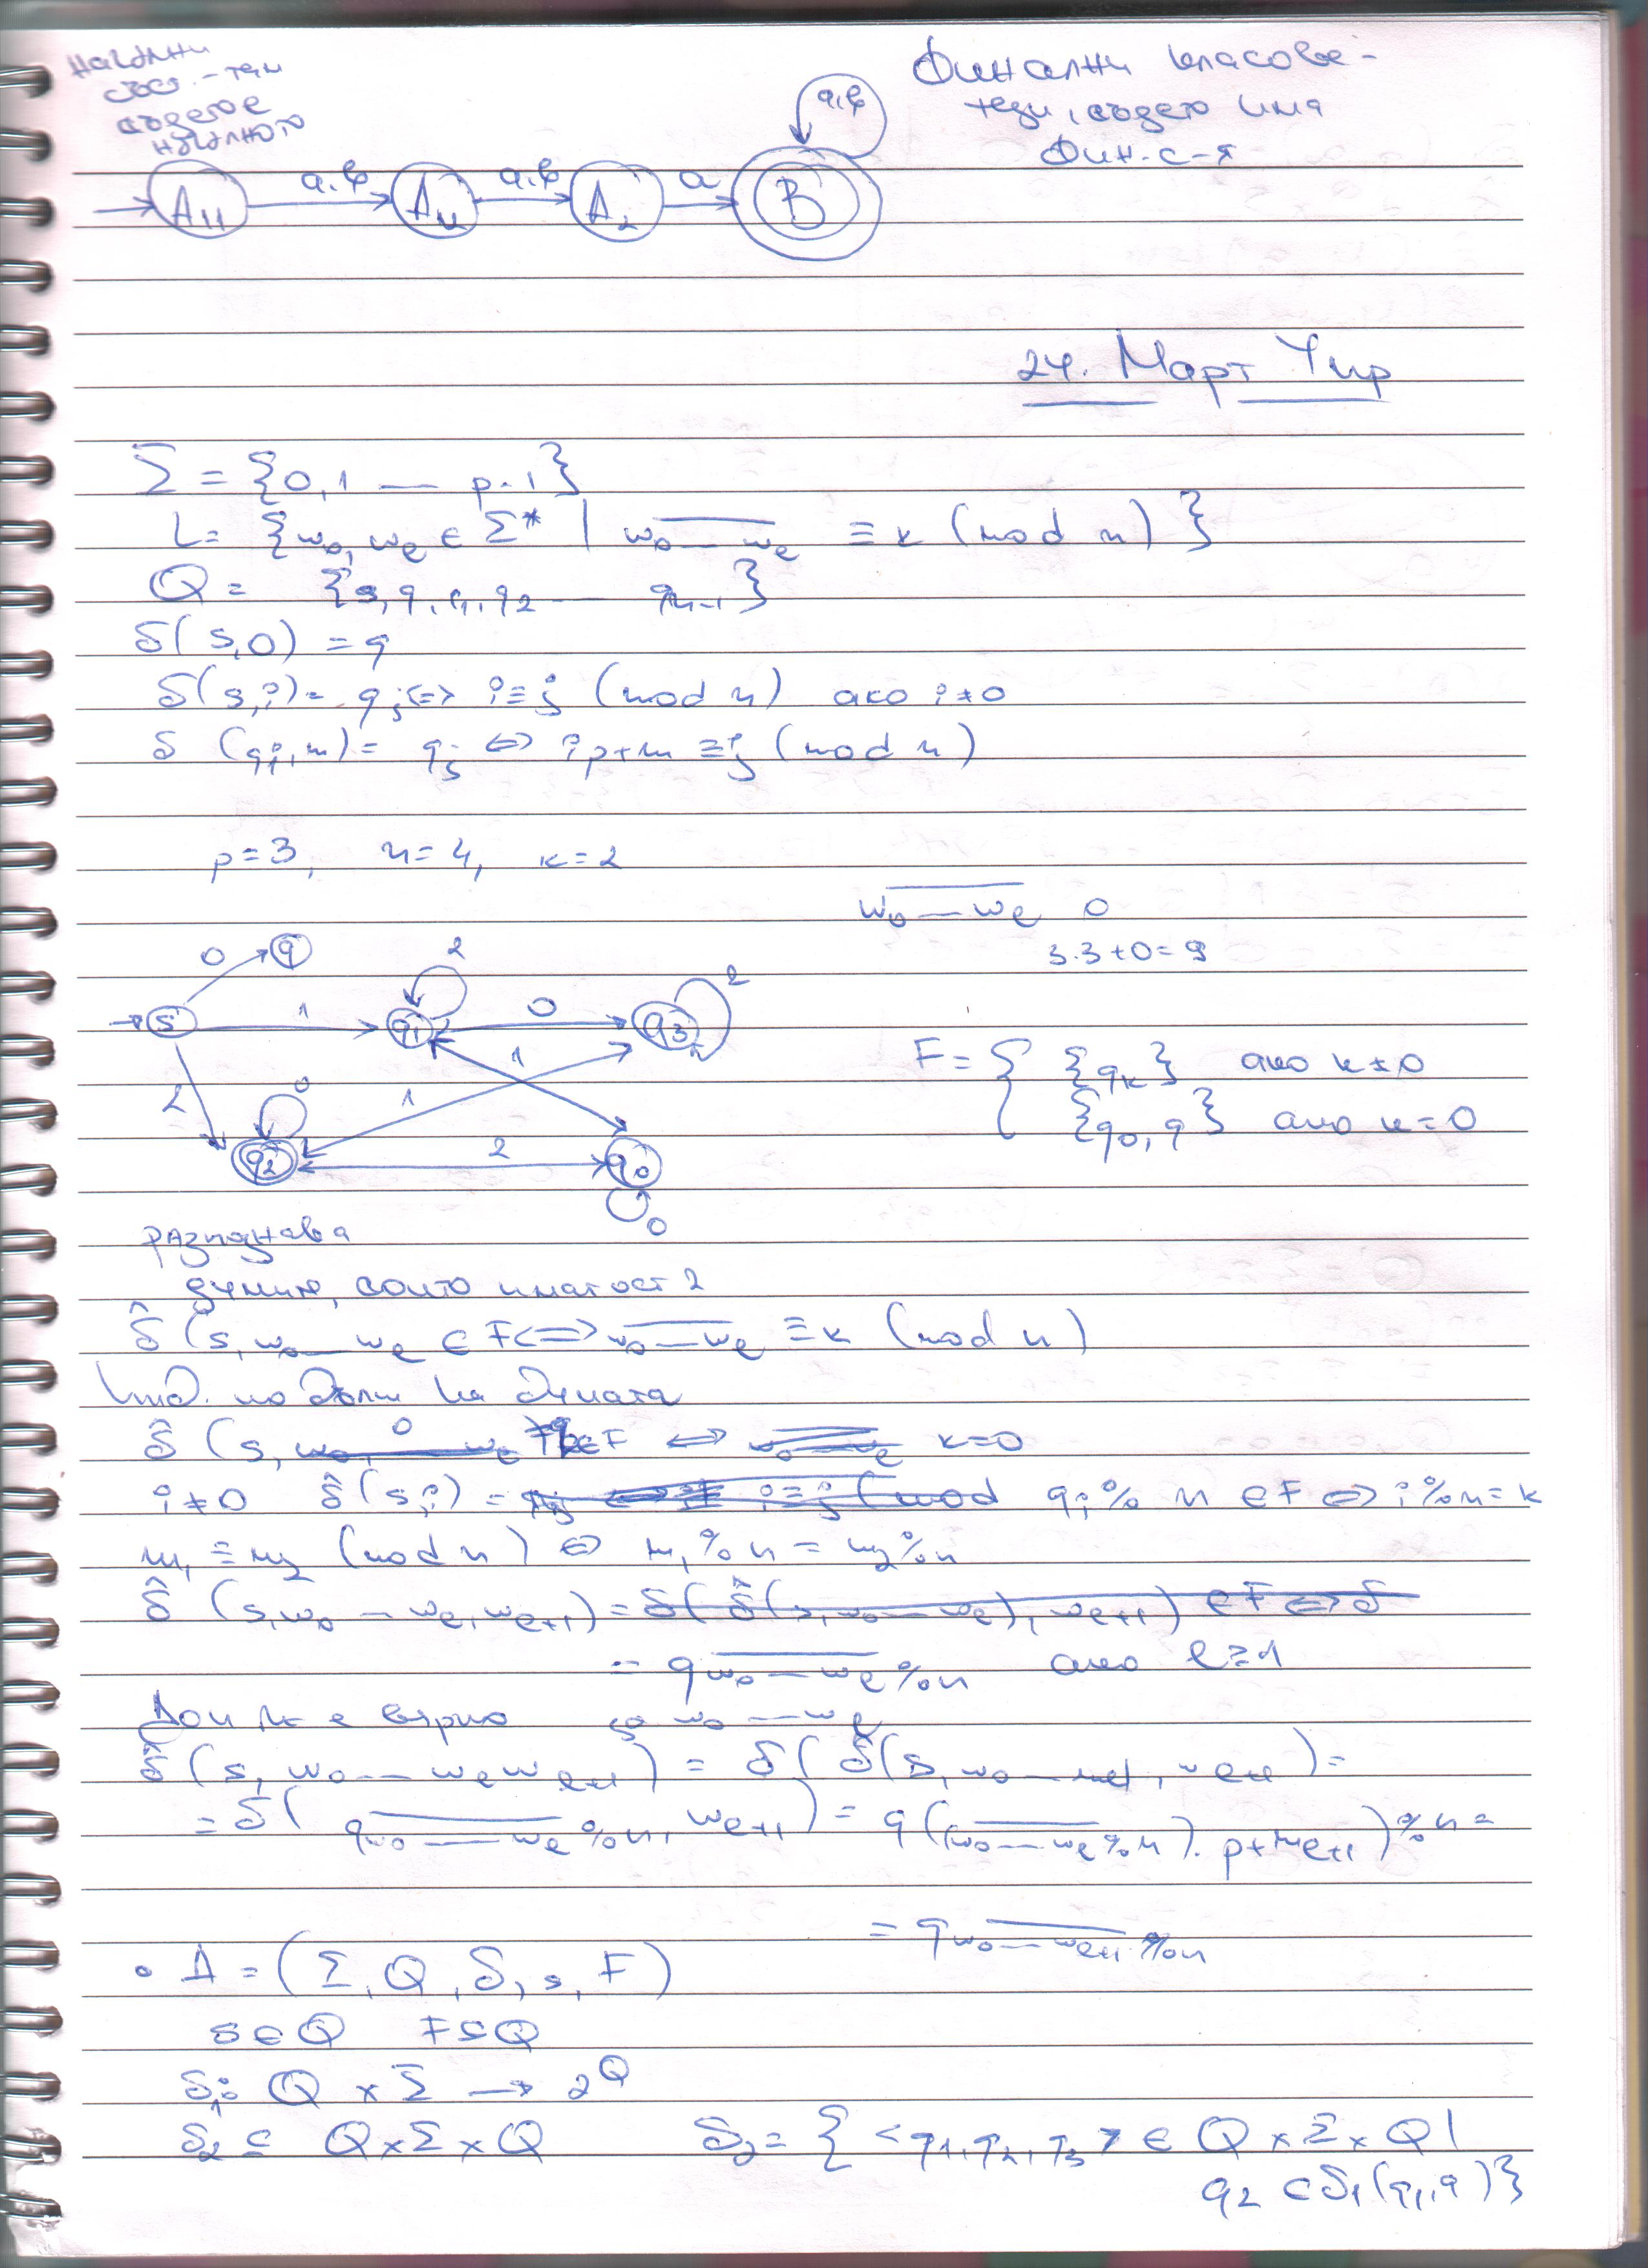 начални
със. - тези
където е
началното
Финални класове -
тези, където има
фин. с-я
a,б
A₄ a,б A₄ a,б A₂ a B
24. Март Чир
Σ = {0,1 — p-1}
L = {w₀, wₑ ∈ Σ* | w₀—wₑ ≡ k (mod n)}
Q = {s, q, q₁, q₂ — qₙ₋₁}
δ(s,0) = q
δ(s,i) = qⱼ <=> i ≡ j (mod n) ако i ≠ 0
δ(qᵢ,m) = qⱼ <=> ip+m ≡ j (mod n)
p=3, n=4, k=2
w₀—wₑ 0
3.3+0=9
0 q 2 2
s 1 q₁ 0 q₃
F = { {qₖ} ако k ≠ 0
{q₀, q} ако k = 0
2 0 1 1
q₂ 2 q₀
0
разпознава
думите, които имат ост 2
δ̂(s, w₀—wₑ ∈ F <=> w₀—wₑ ≡ k (mod n)
Инд. по дълж на думата
δ̂(s, 0 ∈ F <=> k=0
i ≠ 0 δ̂(s,i) = qᵢ%n ∈ F <=> i%n = k
m₁ ≡ m₂ (mod n) <=> m₁%n = m₂%n
δ̂(s, w₀—wₑ, wₑ₊₁) = δ(δ̂(s, w₀—wₑ), wₑ₊₁) ∈ F <=> δ
= q w₀—wₑ%n ако l ≥ 1
Доп че е вярно за w₀—wₑ
δ̂(s, w₀—wₑwₑ₊₁) = δ(δ̂(s, w₀—wₑ), wₑ₊₁) =
= δ(q w₀—wₑ%n, wₑ₊₁) = q((w₀—wₑ%n).p+wₑ₊₁)%n =
= q w₀—wₑ₊₁%n
• A = (Σ, Q, δ, s, F)
s ∈ Q F ⊆ Q
δ₁: Q × Σ → 2^Q
δ₂ ⊆ Q×Σ×Q δ₂ = {<q₁, q₂, q₃> ∈ Q × Σ × Q |
q₂ ∈ δ₁(q₁, a)}